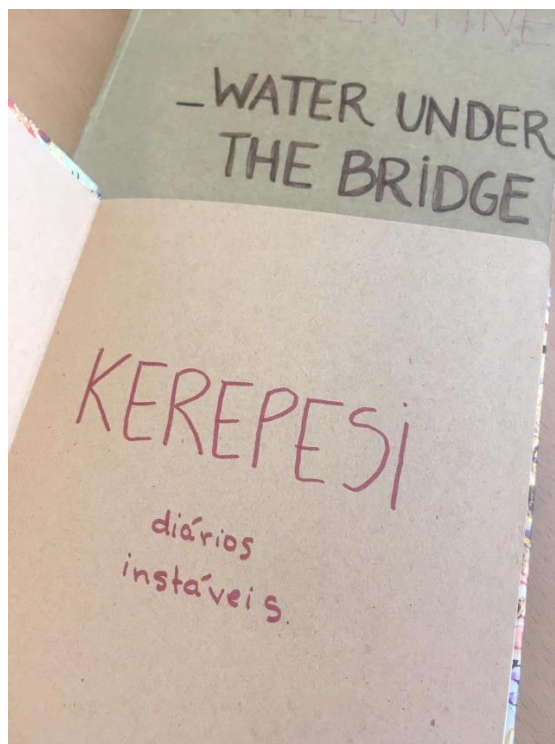 _WATER UNDER
THE BRIDGE
KEREPESI
diários
instáveis